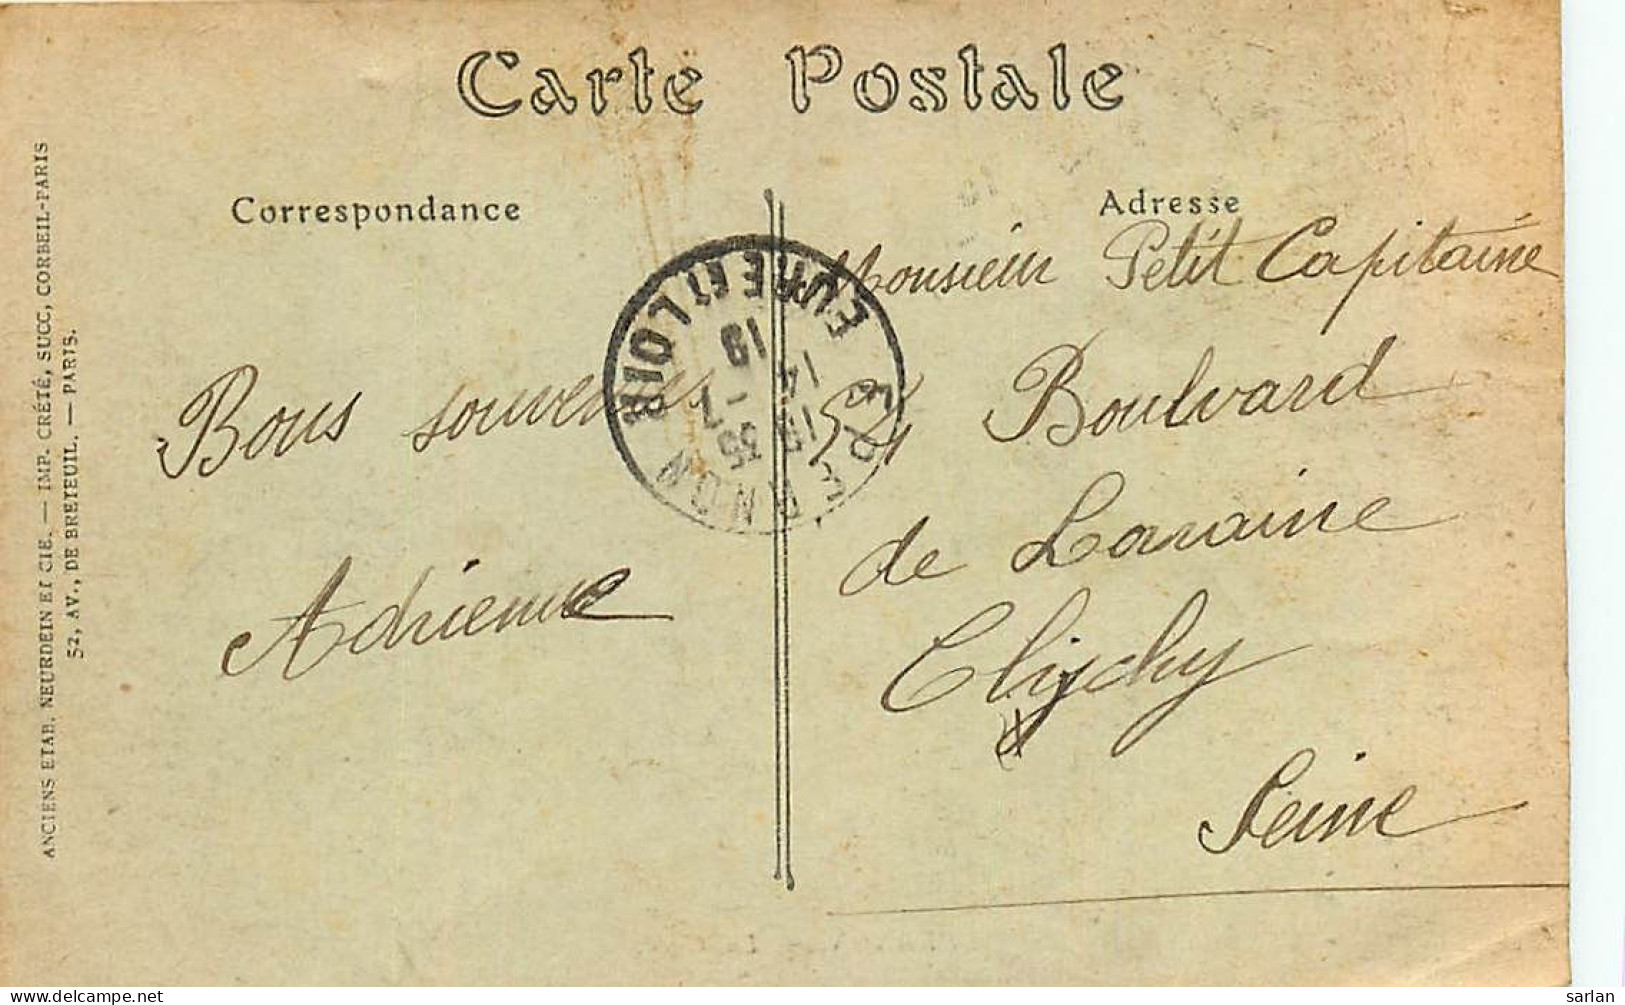 Carte Postale
Correspondance
Bons souvenirs
Adrienne
Adresse
Monsieur Petit Capitaine
54 Boulvard
de Loraine
Clichy
Seine
EPERNON
EURE ET LOIR
19 35
14 -7
19
ANCIENS ETAB. NEURDEIN ET CIE. — IMP. CRÉTÉ, SUCC, CORBEIL-PARIS
52, AV., DE BRETEUIL. — PARIS.
sarlan